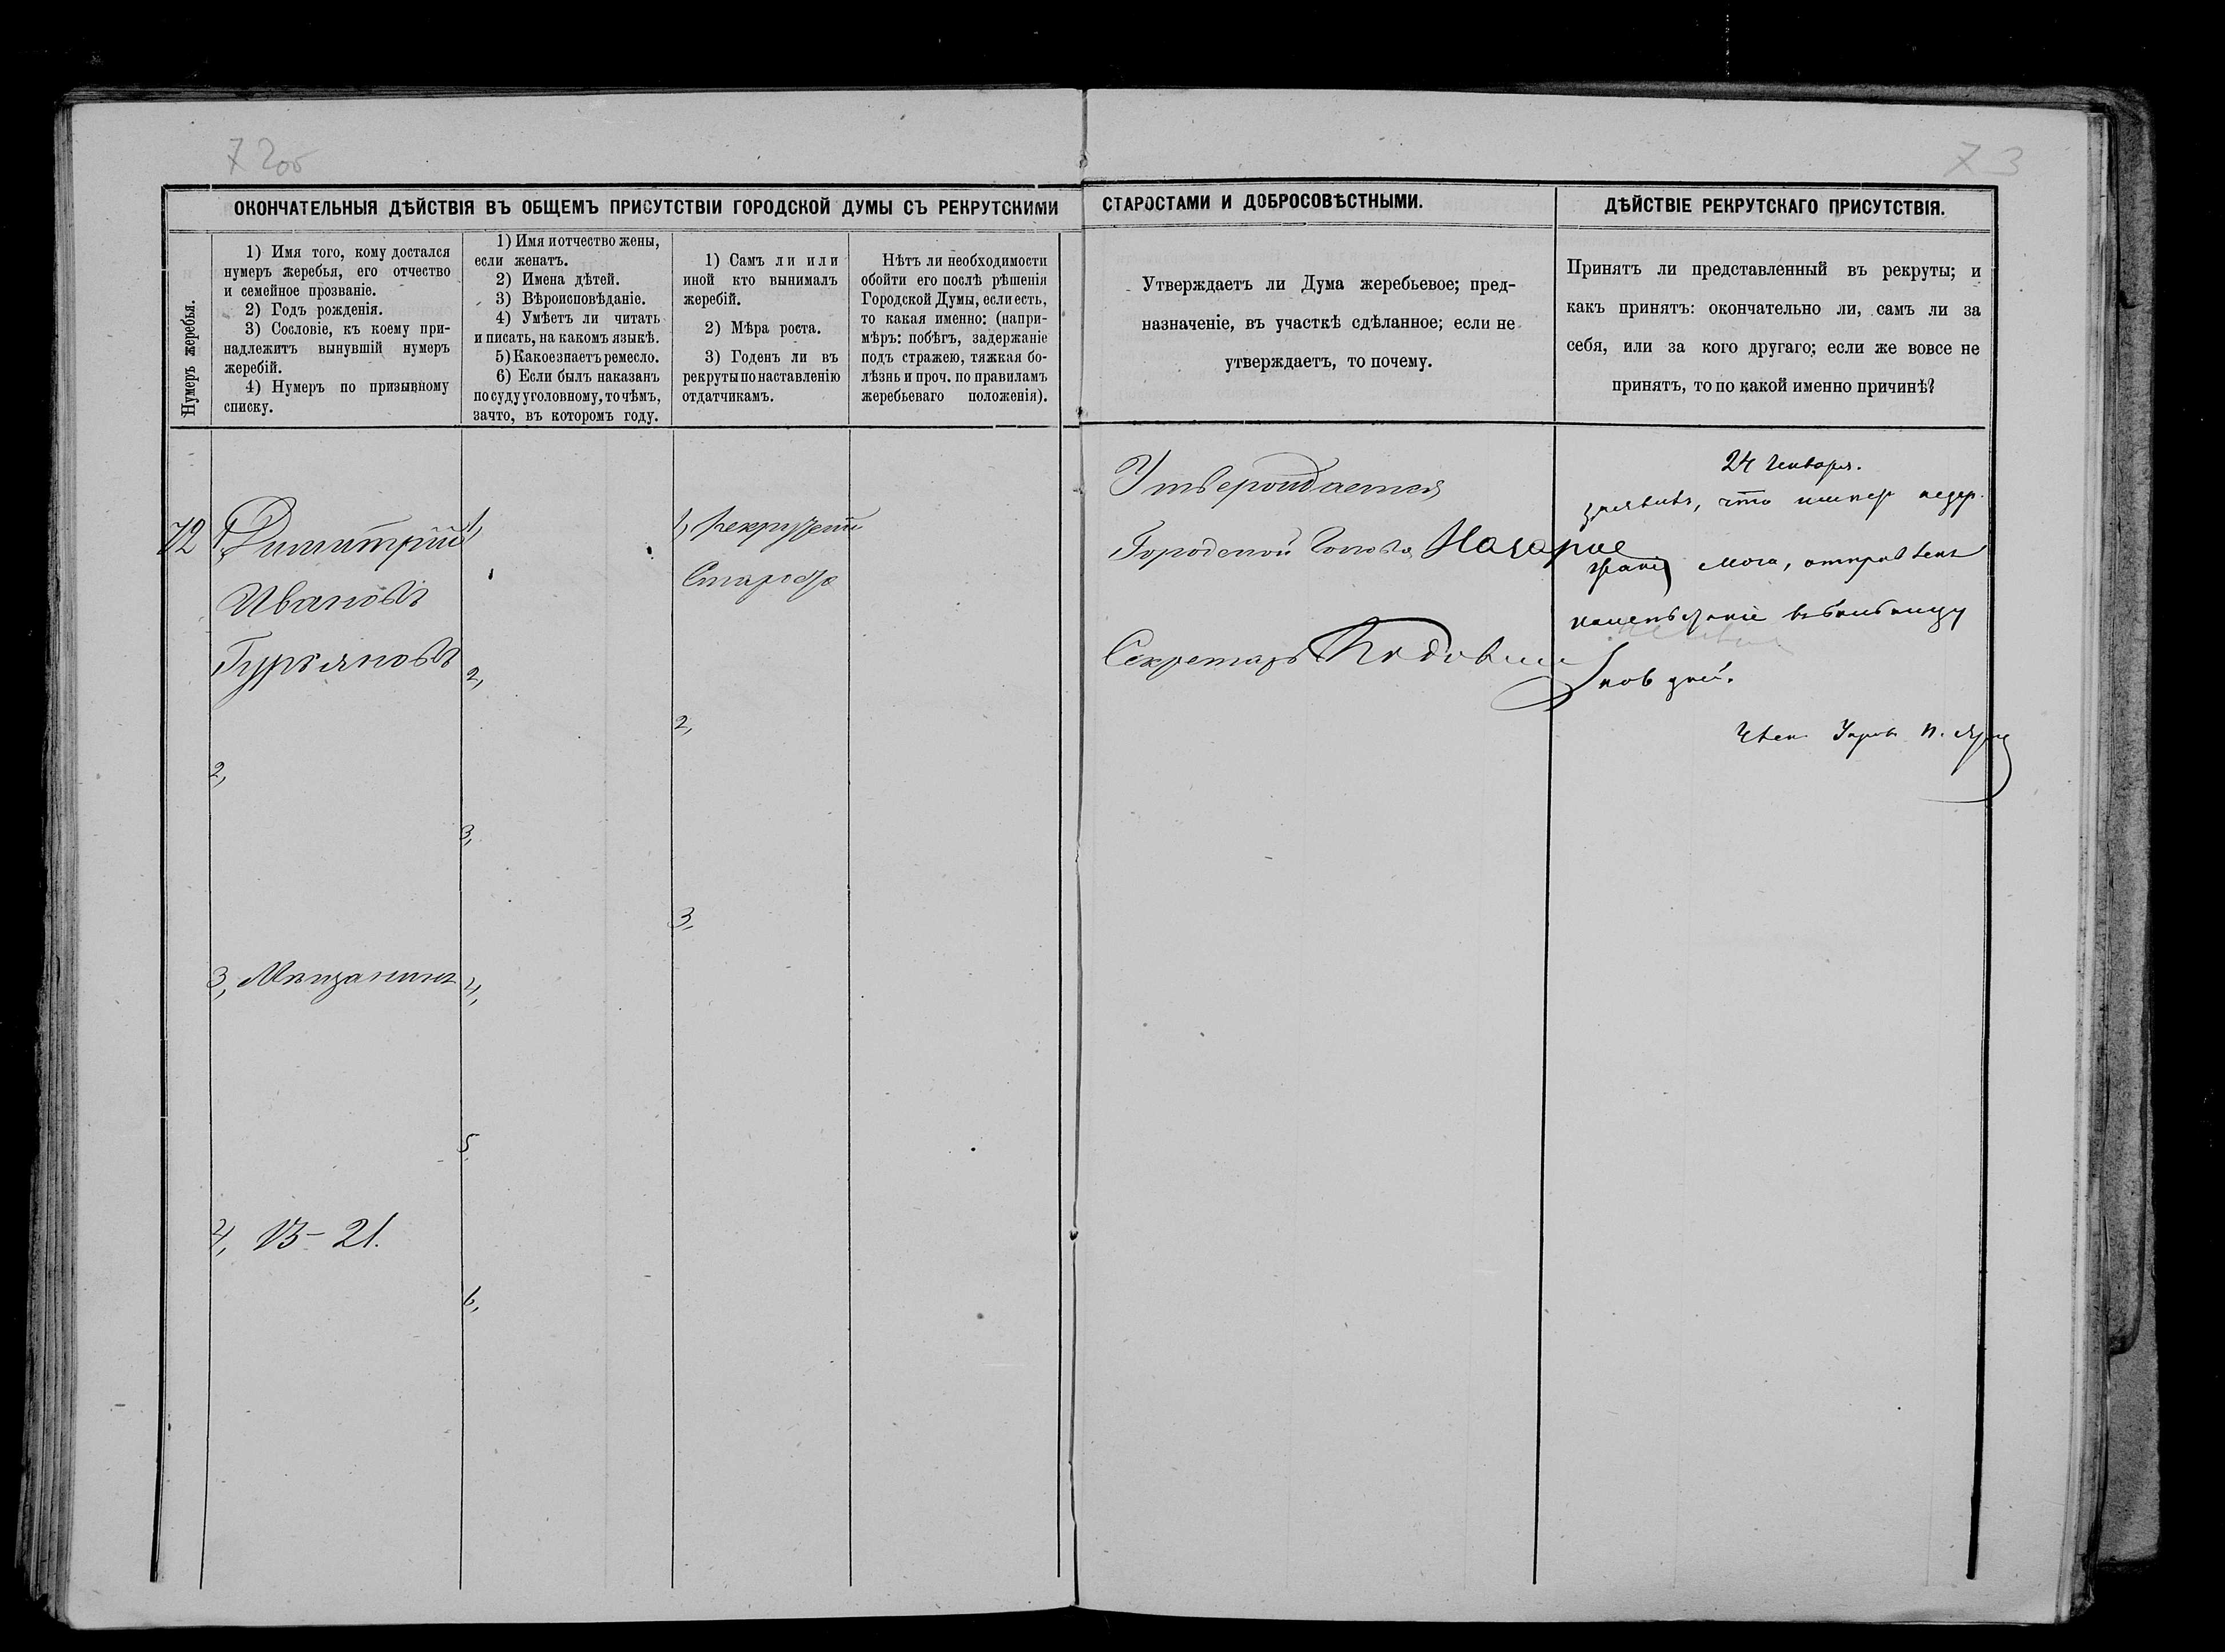 72об
73
ОКОНЧАТЕЛЬНЫЯ ДѢЙСТВІЯ ВЪ ОБЩЕМЪ ПРИСУТСТВІИ ГОРОДСКОЙ ДУМЫ СЪ РЕКРУТСКИМИ
СТАРОСТАМИ И ДОБРОСОВѢСТНЫМИ.
ДѢЙСТВІЕ РЕКРУТСКАГО ПРИСУТСТВІЯ.
Нумеръ жеребья.
1) Имя того, кому достался
нумеръ жеребья, его отчество
и семейное прозваніе.
2) Годъ рожденія.
3) Сословіе, къ коему при-
надлежитъ вынувшій нумеръ
жеребій.
4) Нумеръ по призывному
списку.
1) Имя и отчество жены,
если женатъ.
2) Имена дѣтей.
3) Вѣроисповѣданіе.
4) Умѣетъ ли читать
и писать, на какомъ языкѣ.
5) Какое знаетъ ремесло.
6) Если былъ наказанъ
по суду уголовному, то чѣмъ,
за что, въ которомъ году.
1) Самъ ли или
иной кто вынималъ
жеребій.
2) Мѣра роста.
3) Годенъ ли въ
рекруты по наставленію
отдатчикамъ.
Нѣтъ ли необходимости
обойти его послѣ рѣшенія
Городской Думы, если есть,
то какая именно: (напри-
мѣръ: побѣгъ, задержаніе
подъ стражею, тяжкая бо-
лѣзнь и проч. по правиламъ
жеребьеваго положенія).
Утверждаетъ ли Дума жеребьевое; пред-
назначеніе, въ участкѣ сдѣланное; если не
утверждаетъ, то почему.
Принятъ ли представленный въ рекруты; и
какъ принятъ: окончательно ли, самъ ли за
себя, или за кого другаго; если же вовсе не
принятъ, то по какой именно причинѣ?
72
1, Димитрій
Ивановъ
Гурьяновъ
2,
3, Мѣщанинъ
4, 13-21.
1,
2,
3,
4,
5
6,
1, Рекрутскій
Староста
2,
3,
Утверждается
Городской Голова
Секретарь
24 Января.
что
отправленъ